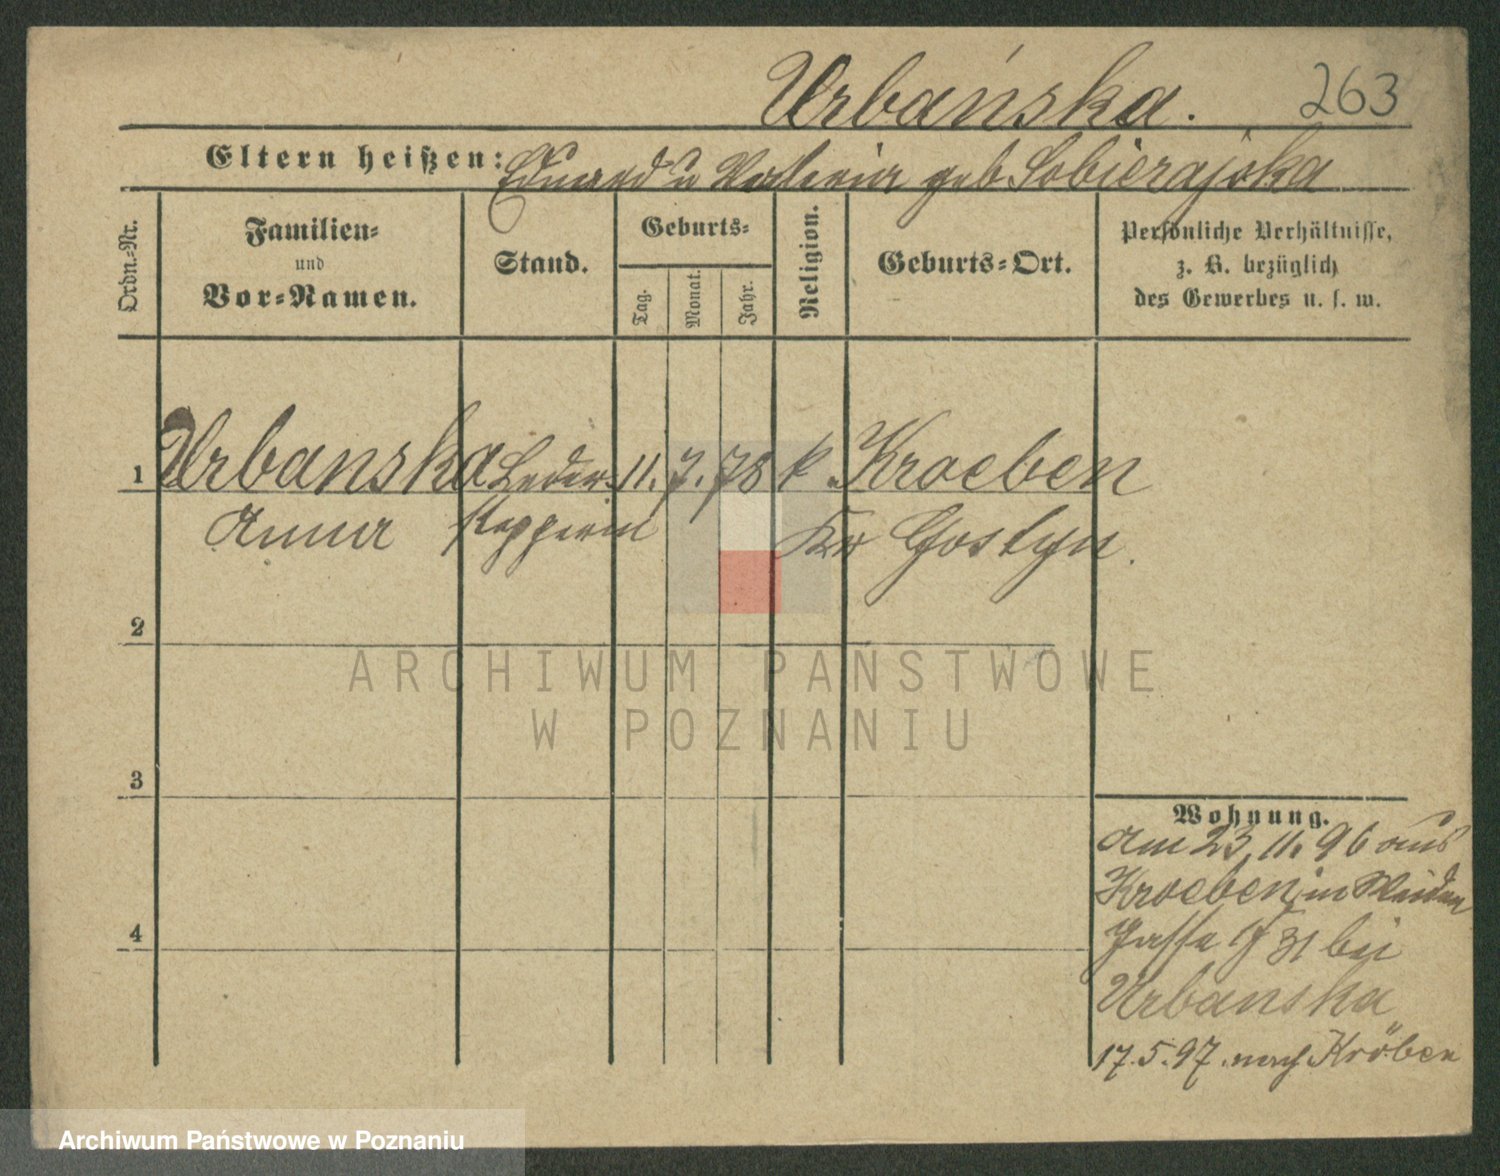 Urbańska. 263
Eltern heißen: Eduard u Valeria geb Sobierajska
Ordn.-Nr.
Familien-
und
Vor-Namen.
Stand.
Geburts-
Tag.
Monat.
Jahr.
Religion.
Geburts-Ort.
Persönliche Verhältnisse,
z. B. bezüglich
des Gewerbes u. s. w.
1 Urbanska Leder- 11. 7. 78 k. Kroeben
Anna stepperin Kr Gostyn.
2
3
4
Wohnung.
am 23. 11. 96 aus
Kroeben, in Weiden
Gasse 31 bei
Urbanska
17. 5. 97. nach Kröben
ARCHIWUM PAŃSTWOWE
W POZNANIU
Archiwum Państwowe w Poznaniu